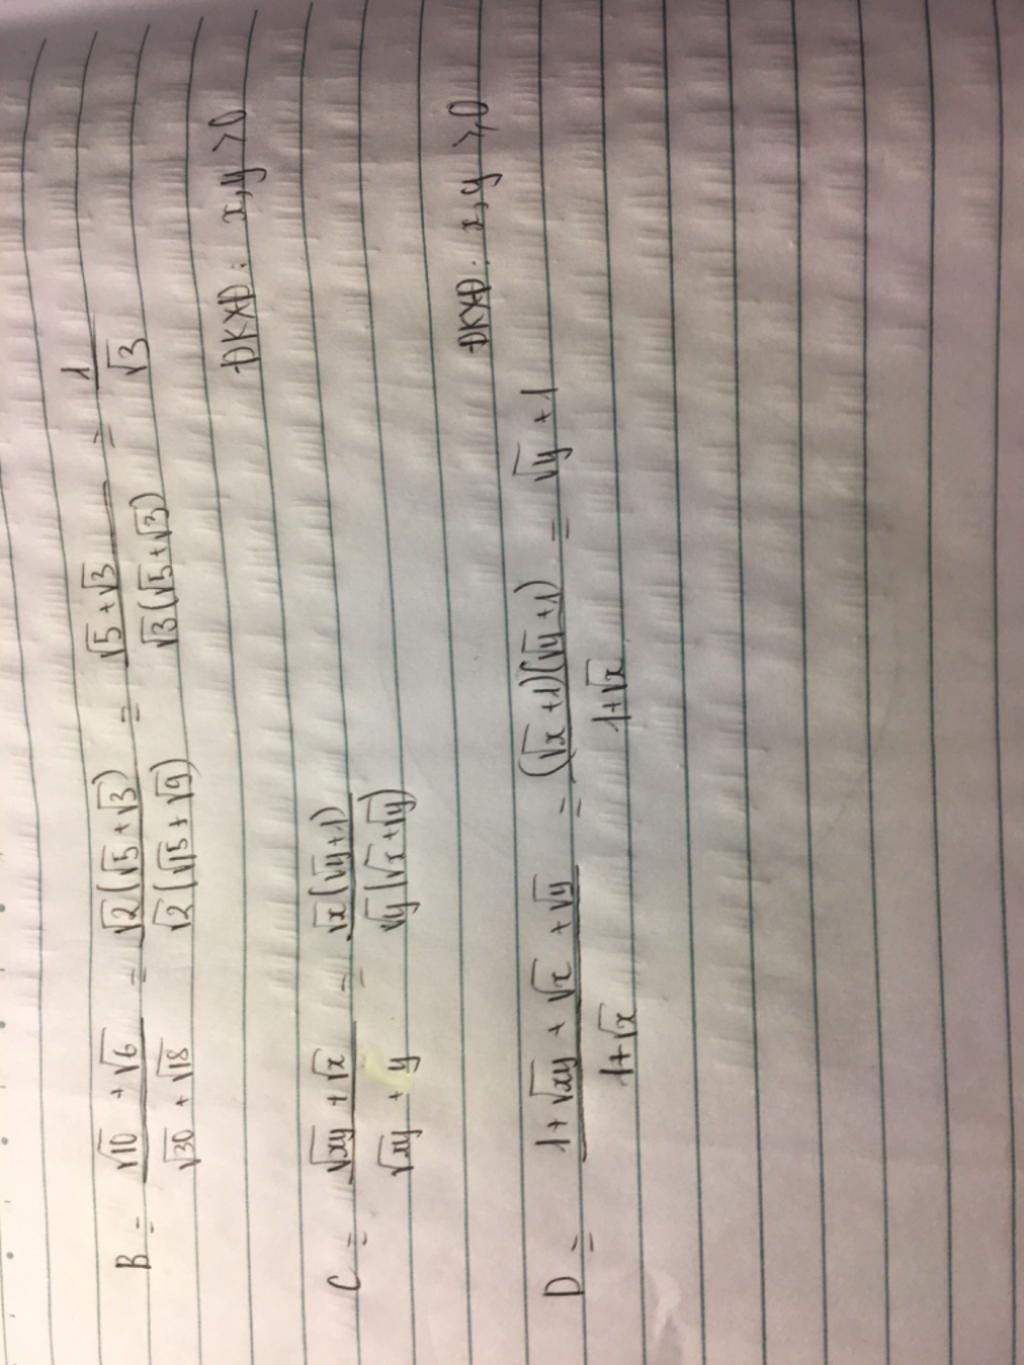 B = (√10 + √6)/(√30 + √18) = √2(√5+√3)/√2(√15+√9) = (√5+√3)/√3(√5+√3) = 1/√3
ĐKXĐ: x,y >0
C = (√xy + √x)/(√xy + y) = √x(√y+1)/√y(√x+√y)
ĐKXĐ: x,y ⩾0
D = (1+√xy + √x +√y)/(1+√x) = (√x +1)(√y+1)/(1+√x) = √y +1